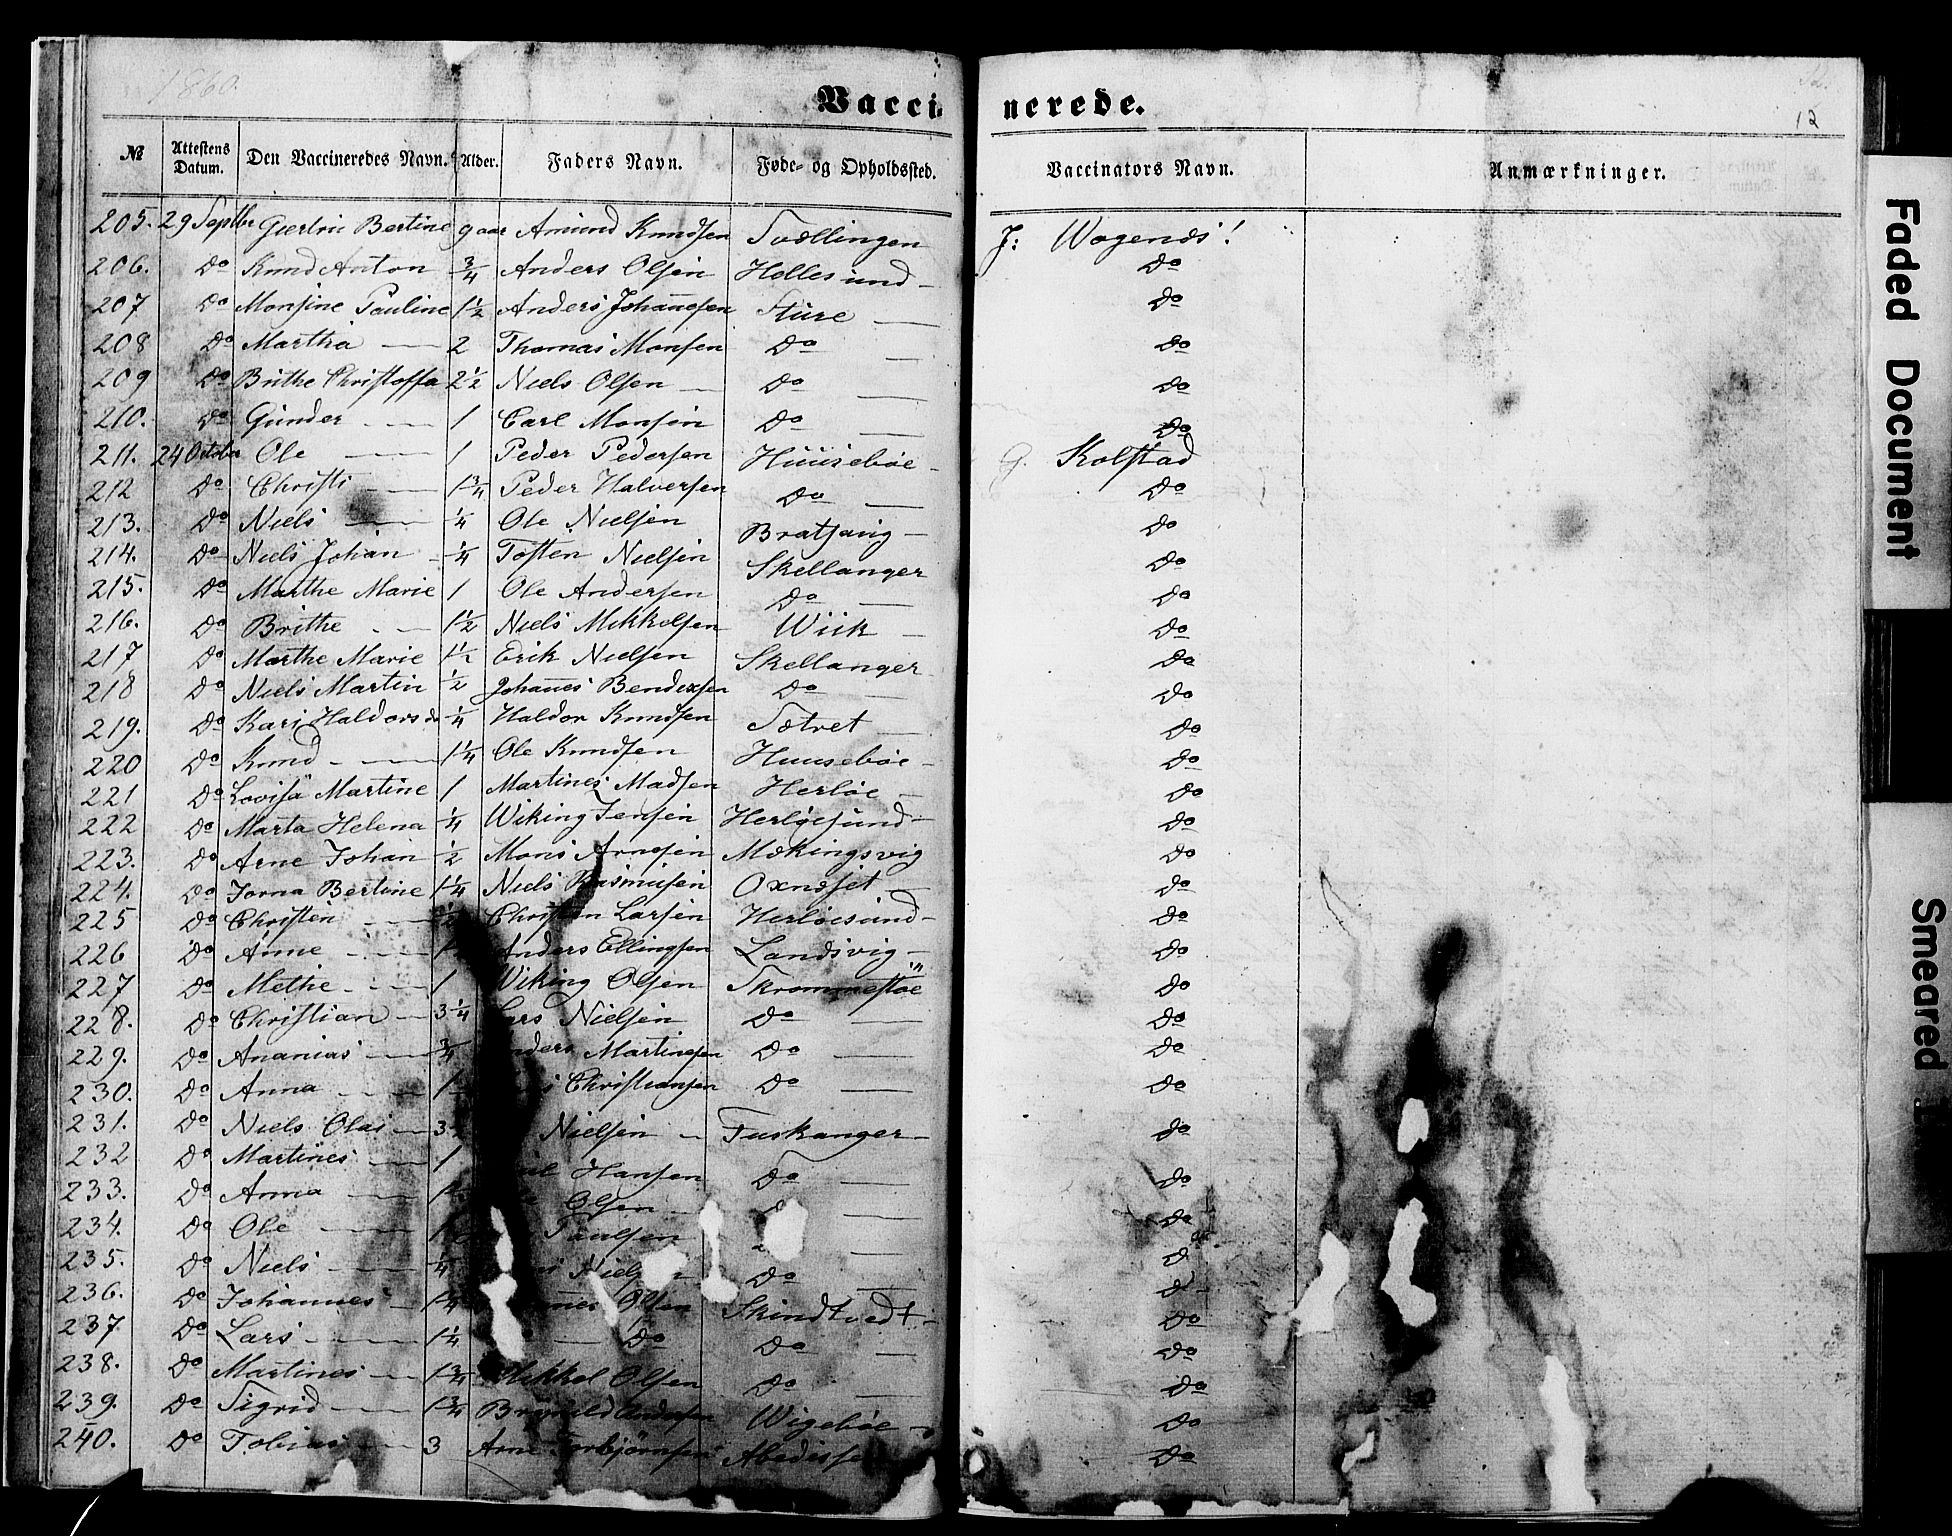 1860.
Vaccinerede.
12
№ Attestens Datum. Den Vaccineredes Navn. Alder. Faders Navn. Føde- og Opholdssted. Vaccinators Navn. Anmærkninger.
205. 29 Septbr Giertrü Bertine 9 aar Amund Knudsen Tvællingen J: Wogenæs!
206. Do Knud Anton 3/4 Anders Olsen Hollesund — Do
207 Do Monsine Pauline 1½ Anders Johannesen Sture — Do
208 Do Martha — 2 Thomas Monsen Do — Do
209 Do Brithe Christoffa 2½ Niels Olsen — Do — Do
210. Do Gunder — 1 Carl Monsen Do — Do
211. 24 October Ole — 1 Peder Pedersen Huusebøe — G. Kolstad
212 Do Christi — 1¾ Peder Halversen Do — Do
213. Do Niels — ¼ Ole Nielsen Bratsang — Do
214. Do Niels Johan ¼ Tosten Nielsen Skellanger Do
215. Do Marthe Marie 1 Ole Andersen Do — Do
216. Do Brithe — 1½ Niels Mikkelsen Wiik — Do
217 Do Marthe Marie 1½ Erik Nielsen Skellanger Do
218 Do Niels Martin ½ Johannes Bendixsen Do — Do
219. Do Kari Haldorsdr ¼ Haldor Knudsen Sætret — Do
220 Do Knud — 1¼ Ole Knudsen Huusebøe — Do
221 Do Lovisa Martine 1 Martines Madsen Herløe — Do
222 Do Marta Helena ¼ Wiking Jensen Herløesund — Do
223. Do Arne Johan ½ Mons Arnesen Mækingsvig Do
224. Do Jorna Bertine 1¼ Niels Rasmusen Oxnæset — Do
225 Do Christen — ½ Christen Larsen Herløesund — Do
226 Do Anne — Anders Ellingsen Landsvig — Do
227 Do Methe — 1 Wiking Olsen Skrommestøe Do
228. Do Christian — 3¼ Lars Nielsen Do — Do
229. Do Ananias — ¾ Anders Martinesen Do — Do
230. Do Anna — Christiansen Do — Do
231. Do Niels Olai — Nielsen — Tuskanger — Do
232 Do Martines — 1 Hansen Do — Do
233. Do Anna — Olsen — Do
234. Do Ole — Paulsen —
235. Do Niels — ¼ Do —
236. Do Johannes — 1¼ Olsen Skindtvedt — Do
237. Do Lars — 1¼ — Do Do — Do
238. Do Martines — 1¾ Mikkel Olsen Do — Do
239. Do Sigrid — 1¾ Wigebøe — Do
240. Do Tobias — 3 Arne Torbjørnsen Do
Faded Document
Smeared